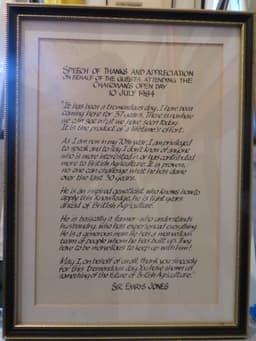 SPEECH OF THANKS AND APPRECIATION
ON BEHALF OF THE GUESTS ATTENDING THE
CHAIRMAN'S OPEN DAY
10 JULY 1984
"It has been a tremendous day, I have been
coming here for 37 years. There is nowhere
we can see what we have seen today.
It is the product of a lifetime's effort.
As I am now in my 70th year, I am privileged
to speak and to say I don't know of anyone
who is more interested in or has contributed
more to British Agriculture. It is proven,
no one can challenge what he has done
over the last 30 years.
He is an inspired geneticist who knows how to
apply this knowledge, he is light years
ahead of British Agriculture.
He is basically a farmer who understands
husbandry, who has experienced everything.
He is a generous man. He has a marvellous
team of people whom he has built up. They
have to be marvellous to keep up with him!
May I, on behalf of us all, thank you sincerely
for this tremendous day. You have shown us
something of the future of British Agriculture."
SIR EMRYS JONES